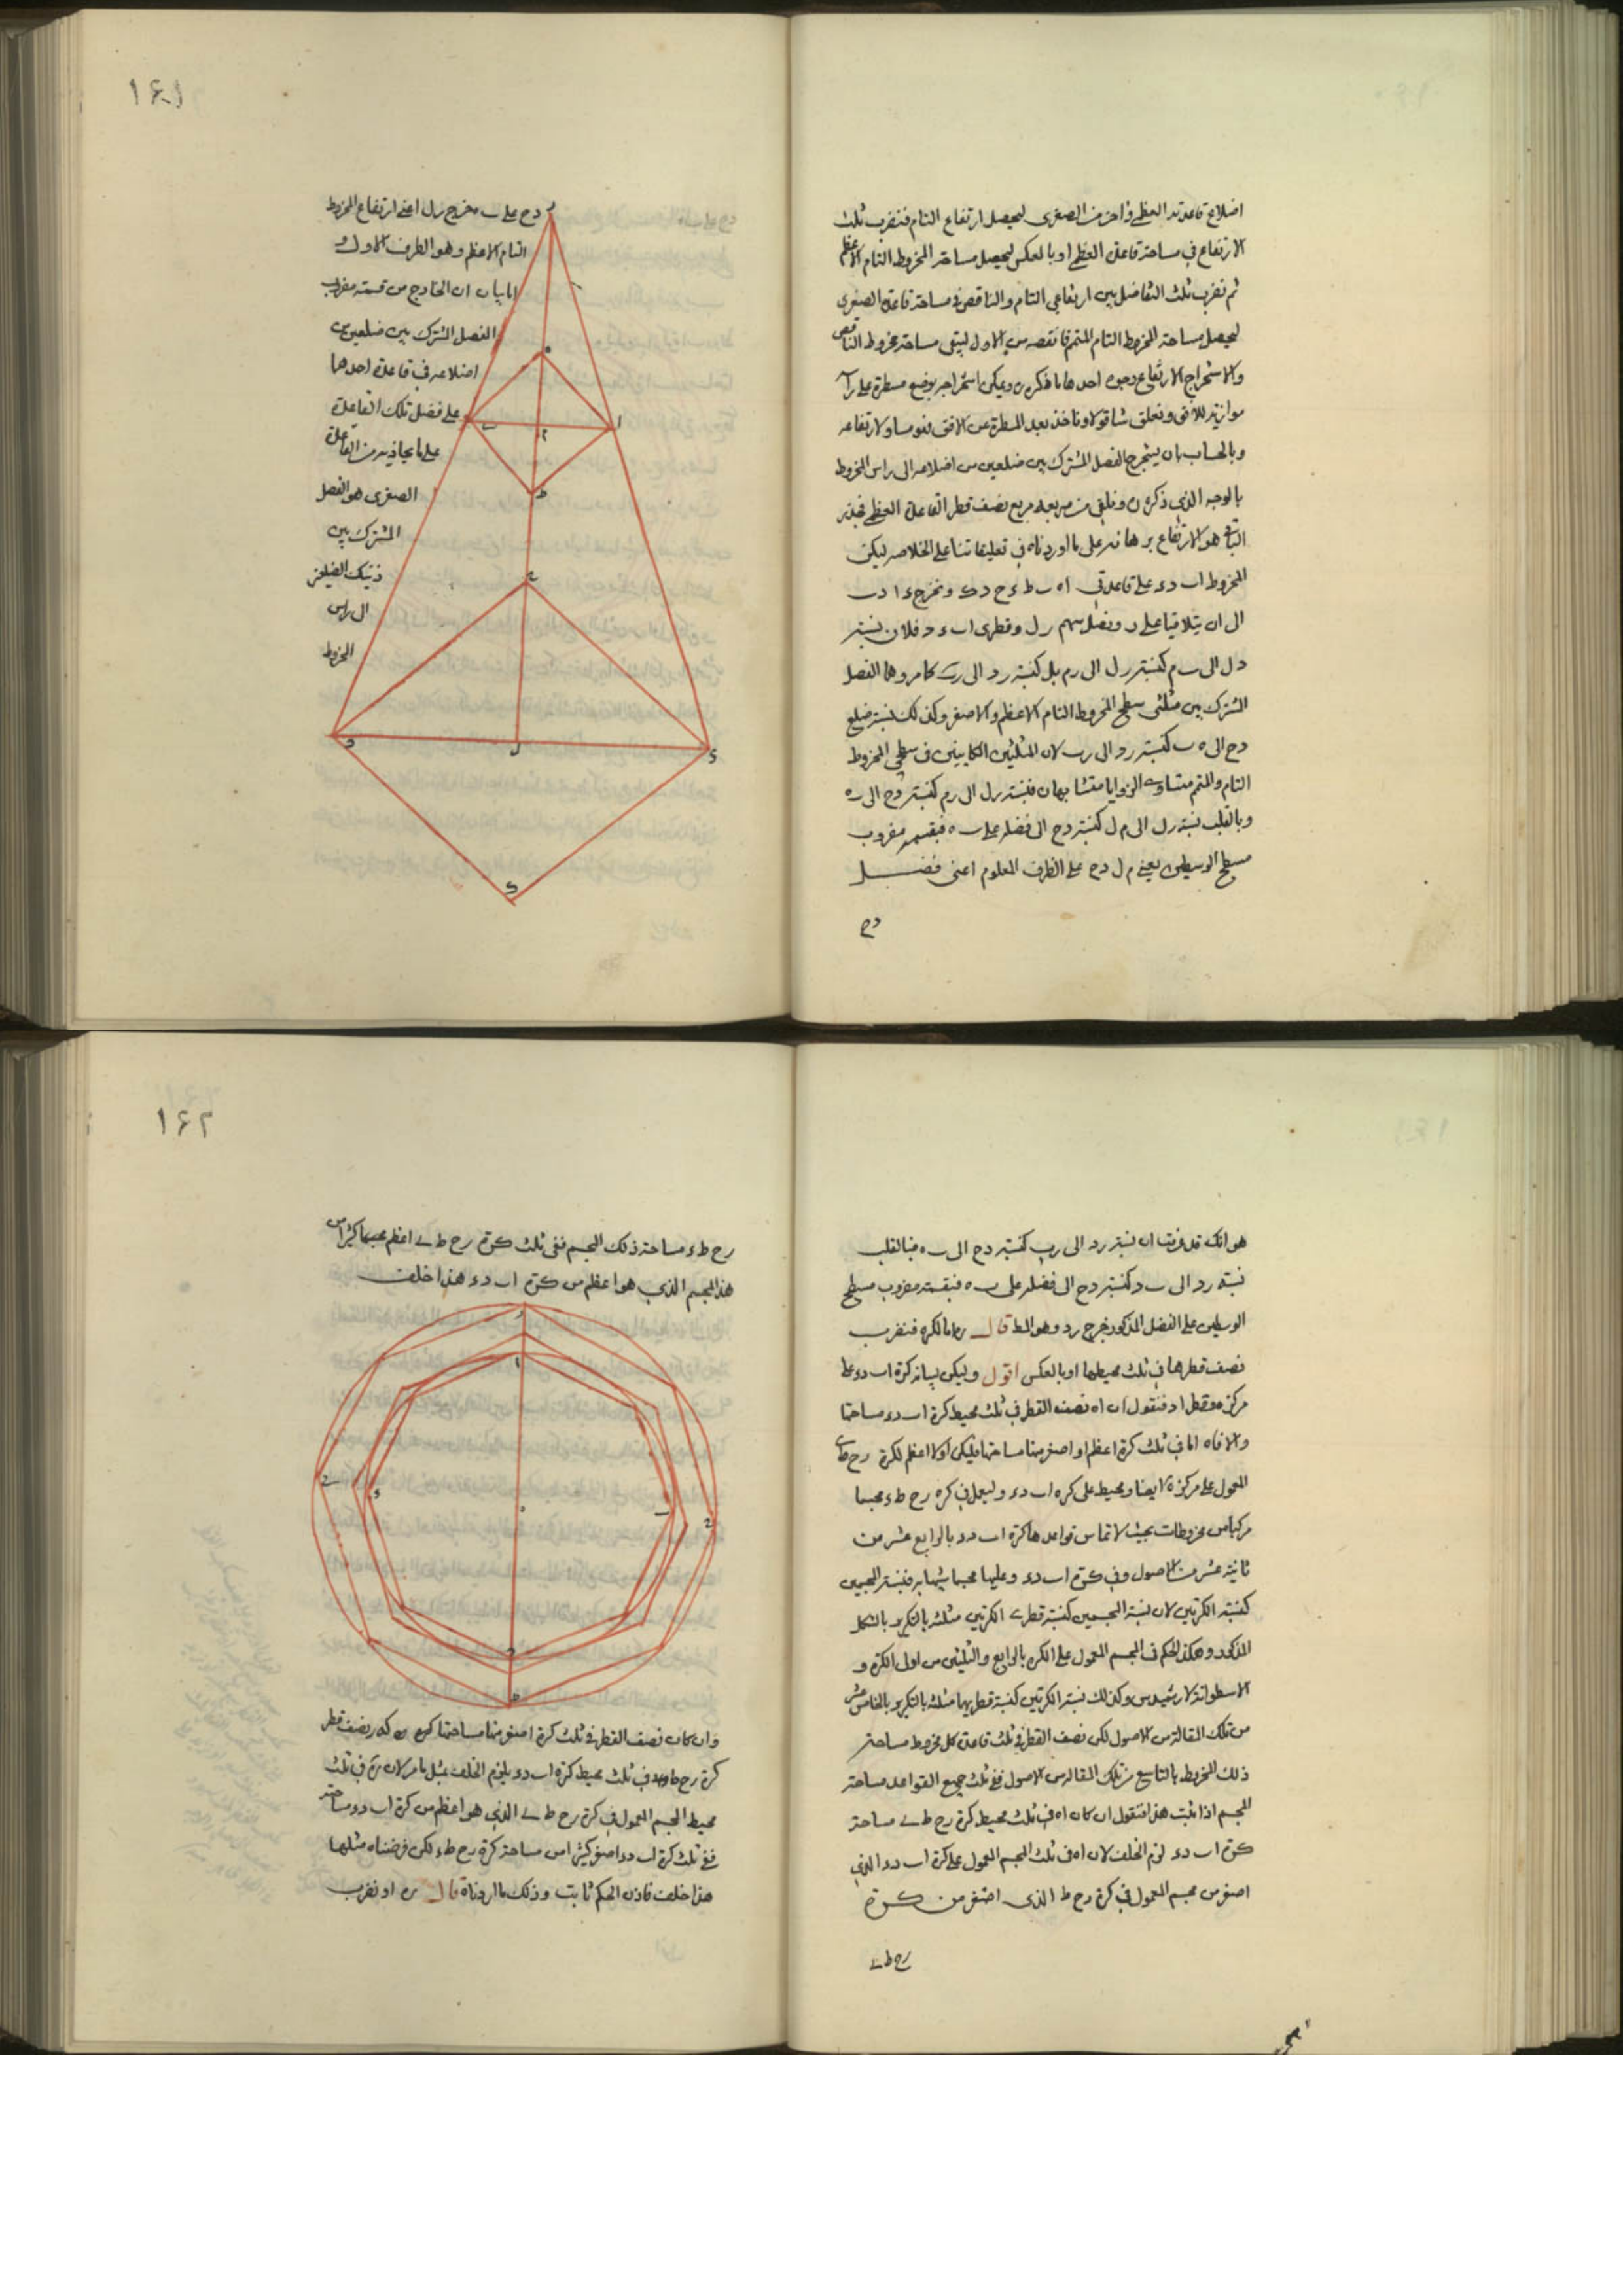 اضلاع قاعدته العظمى واخر من الصغرى ليحصل ارتفاع التام فنضرب ثلث
الارتفاع في مساحة قاعدة العظمى او بالعكس ليحصل مساحة المخروط التام الاعظم
ثم نضرب ثلث التفاضل بين ارتفاعي التام والناقص في مساحة قاعدة الصغرى
ليحصل مساحة المخروط التام المتمم فانقصه من الاول ليبقى مساحة مخروط الناقص
ولاستخراج الارتفاع وجوه احدها ما ذكره ره ويمكن استخراجه بوضع مسطرة على راسه
موازية للافق ونعلق شاقولا وناخذ بعد المسطرة عن الافق فهو مساو لارتفاعه
وبالحساب بان يستخرج الفصل المشترك بين ضلعين من اضلاعه الى راس المخروط
بالوجه الذي ذكره ره ونلقي من مربعه مربع نصف قطر القاعدة العظمى فجذر
الباقي هو الارتفاع برهانه على ما اوردناه في تعليقاتنا على الخلاصه ليكن
المخروط اب دء على قاعدتي اه ب ط ء ح د ك ونخرج ء ا د ب
الى ان يتلاقيا على ر ونصل سهم رل وقطري اب ء د فلان نسبة
دل الى ب م كنسبة رل الى رم بل كنسبة رد الى رب كما مر وهما الفصل
المشترك بين مثلثي سطح المخروط التام الاعظم والاصغر وكذلك نسبة ضلع
دح الى ه ب كنسبة رد الى رب لان المثلثين الكاينين في سطحي المخروط
التام والمتمم متساوي الزوايا متشابهان فنسبة رل الى رم كنسبة دح الى ب ه
وبالقلب نسبة رل الى م ل كنسبة دح الى فضله على ب ه فبقسمة مضروب
مسطح الوسطين يعني م ل دح على الطرف المعلوم اعني فضل
دح
١٤١
دح على ب ه يخرج رل اعني ارتفاع المخروط
التام الاعظم وهو الطرف الاول و
اما بيان ان الخارج من قسمة مضروب
الفصل المشترك بين ضلعين من
اضلاعه في قاعدة احدها
على فضل تلك القاعدة
على ما يحاذيه من القاعدة
الصغرى هو الفصل
المشترك بين
ذينك الضلعين
الى راس
المخروط
ر
ه
ب
م
ا
ط
ح
د
ل
ء
ك
هو انك قد عرفت ان نسبة رد الى رب كنسبة دح الى ب ه فبالقلب
نسبة رد الى ب د كنسبة دح الى فضله على ب ه فبقسمة مضروب مسطح
الوسطين على الفضل المذكور يخرج رد وهو المط قال ره اما الكره فنضرب
نصف قطرها في ثلث محيطها او بالعكس اقول وليكن لبيانه كرة اب دء على
مركز ه وقطر اد فنقول ان اه نصف القطر في ثلث محيط كرة اب دء مساحتها
والا فاه اما في ثلث كرة اعظم او اصغر منها مساحتها فليكن اولا اعظم لكرة رح ط ي
المعمول على مركز ه ايضا ومحيط على كره اب دء وليعمل في كره رح ط ء مجسما
مركبا من مخروطات بحيث لا تماس قواعدها كرة اب دء بالرابع عشر من
ثانية عشر من الاصول وفي كرة اب دء وعليها مجسما شبيها به فنسبة المجسمين
كنسبة الكرتين لان نسبة المجسمين كنسبة قطري الكرتين مثلثه بالتكرير بالشكل
المذكور وهكذا الحكم في المجسم المعمول على الكره بالرابع والثلثين من اولى الكرة و
الاسطوانة لارشميدس وكذلك نسبة الكرتين كنسبة قطريهما مثلثه بالتكرير بالخامس عشر
من تلك المقالة من الاصول لكن نصف القطر في ثلث قاعدة كل مخروط مساحة
ذلك المخروط بالتاسع من تلك المقاله من الاصول ففي ثلث جميع القواعد مساحة
المجسم اذا ثبت هذا فنقول ان كان اه في ثلث محيط كرة رح ط ي مساحة
كرة اب دء لزم الخلف لان اه في ثلث المجسم المعمول على كرة اب دء الذي
اصغر من مجسم المعمول في كرة رح ط الذي اصغر من كرة
رح ط ي
١٤٢
رح ط ء مساحة ذلك المجسم ففي ثلث كرة رح ط ي اعظم مجسما كثيرا من
هذا المجسم الذي هو اعظم من كرة اب دء هذا خلف
ر
ا
ي
ء
ه
ب
ح
د
ط
وان كان نصف القطر في ثلث كرة اصغر منها مساحتها نصف قطر
كرة رح ط ي في ثلث محيط كرة اب دء يلزم الخلف بمثل ما مر لان ره في ثلث
محيط المجسم المعمول في كرة رح ط ي الذي هو اعظم من كرة اب دء مساحته
ففي ثلث كرة اب دء اصغر كثيرا من مساحة كرة رح ط ء لكن فرضناه مثلها
هذا خلف فاذن الحكم ثابت وذلك ما اردناه قال ره او نضرب